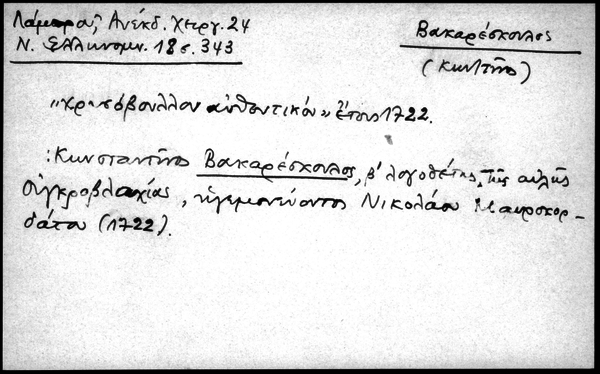 Λάμπρου, Ἀνέκδ. Χειργ. 24
Ν. Ἑλληνομν. 18 σ. 343
Βακαρέσκουλος
(Κων/τῖνος)
"χρυσόβουλλον αὐθεντικόν" ἔτους 1722.
: Κωνσταντῖνος Βακαρέσκουλος, β' λογοθέτης τῆς αὐλῆς
Οὑγκροβλαχίας, ἡγεμονεύοντος Νικολάου Μαυροκορ-
δάτου (1722).